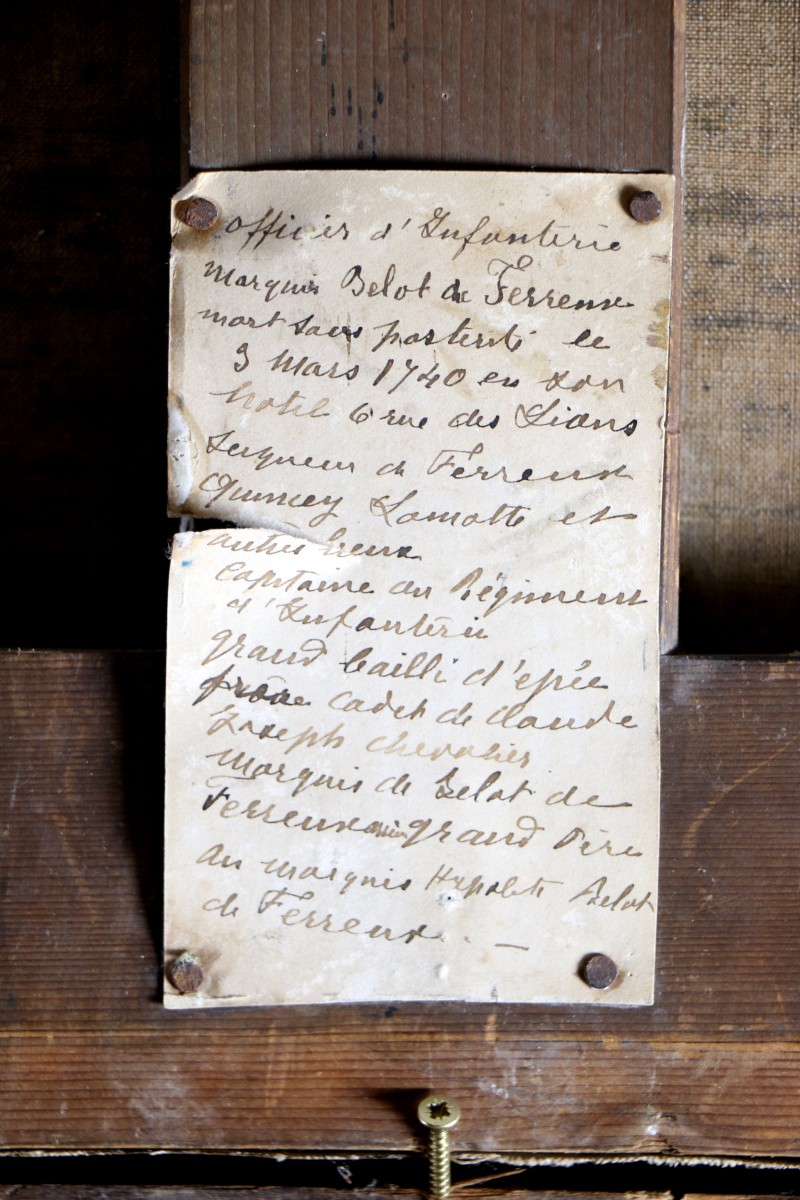 officier d'Infanterie
Marquis Belot de Ferreux
mort sans posterité le
3 Mars 1740 en son
hotel 6 rue des Lions
Seigneur de Ferreux
Quincey Lamotte et
autres lieux
Capitaine au Régiment
d'Infanterie
grand bailli d'epée
frère cadet de Claude
Joseph chevalier
marquis de Belot de
Ferreux grand Père
au marquis Hypolite Belot
de Ferreux. —